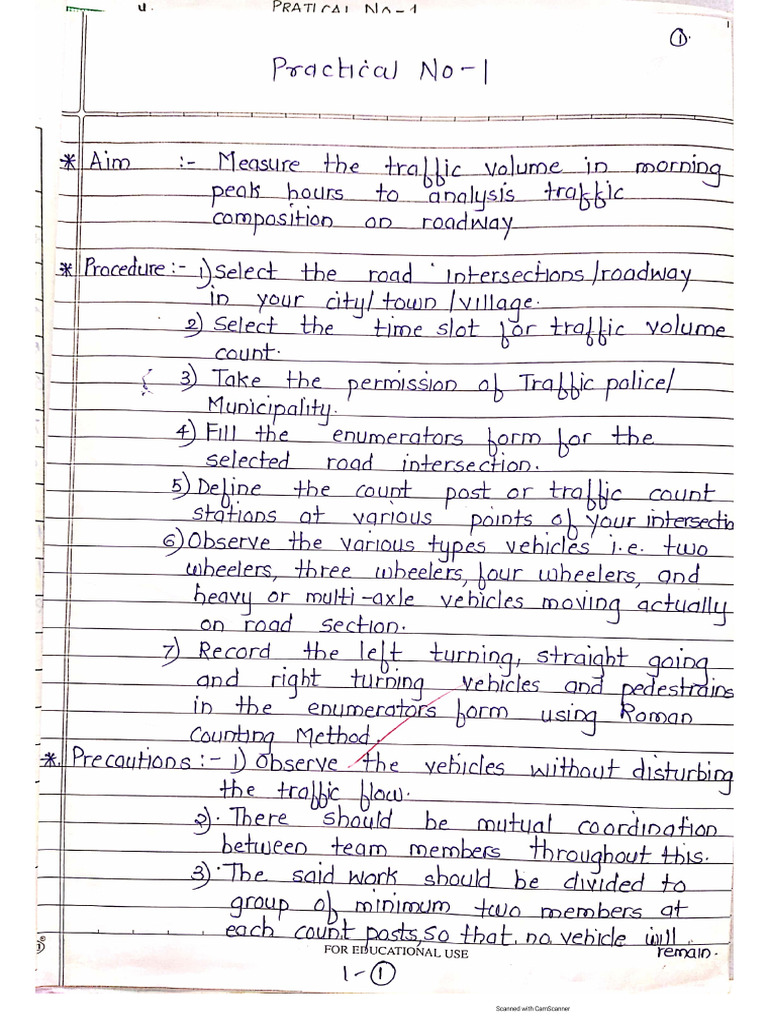 PRATICAL No-1
①.
Practical No-1
* Aim :- Measure the traffic volume in morning
peak hours to analysis traffic
composition on roadway
* Procedure:- 1) Select the road intersections/roadway
in your city/town/village.
2) Select the time slot for traffic volume
count.
3) Take the permission of Traffic police/
Municipality.
4) Fill the enumerators form for the
selected road intersection.
5) Define the count post or traffic count
stations at various points of your intersectio
6) Observe the various types vehicles i.e. two
wheelers, three wheelers, four wheelers, and
heavy or multi-axle vehicles moving actually
on road section.
7) Record the left turning, straight going
and right turning vehicles and pedestrains
in the enumerators form using Roman
Counting Method.
*. Precautions:- 1) Observe the vehicles without disturbing
the traffic flow.
2). There should be mutual coordination
between team members throughout this.
3). The said work should be divided to
group of minimum two members at
each count posts, so that no vehicle will
remain.
FOR EDUCATIONAL USE
1-①
Scanned with CamScanner